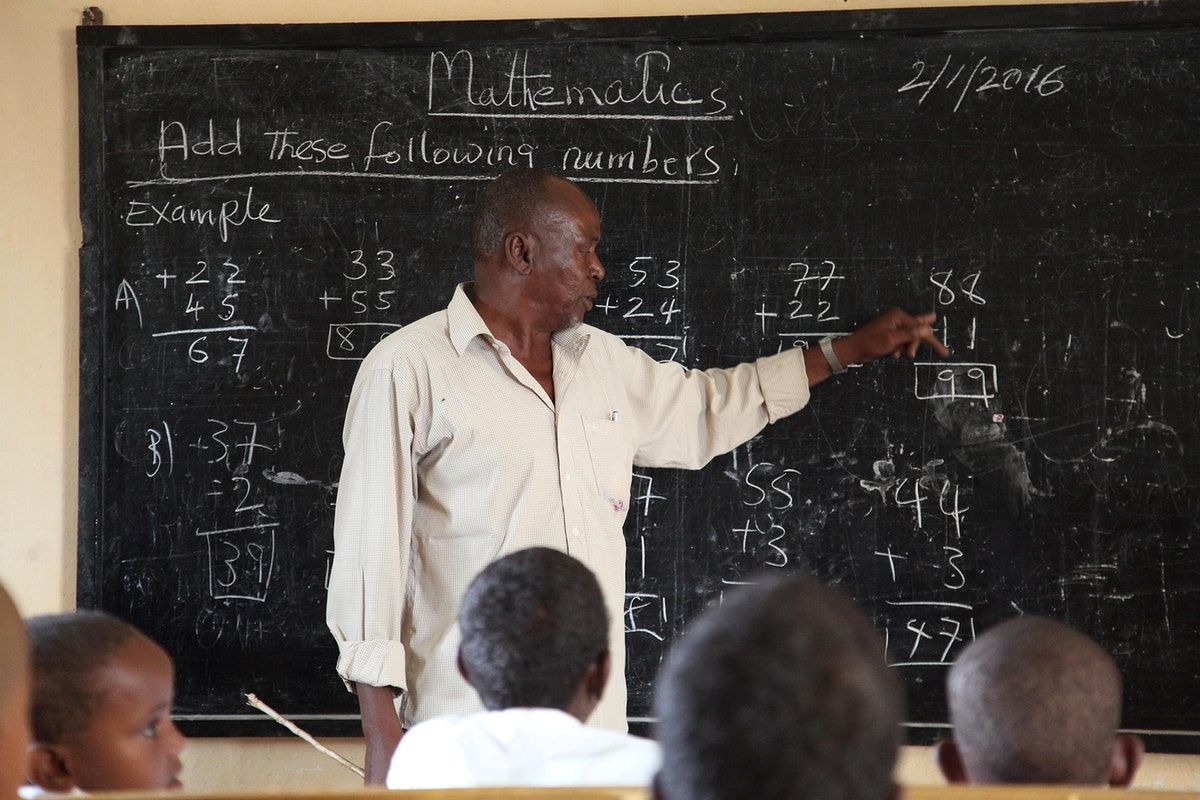 Mathematics.
2/1/2016
Add these following numbers.
Example
A) + 22 33 53 77 88
45 + 55 + 24 + 22 11
67 8 99
B) 37 7 55 44
+ 2 1 + 3 + 3
39 47